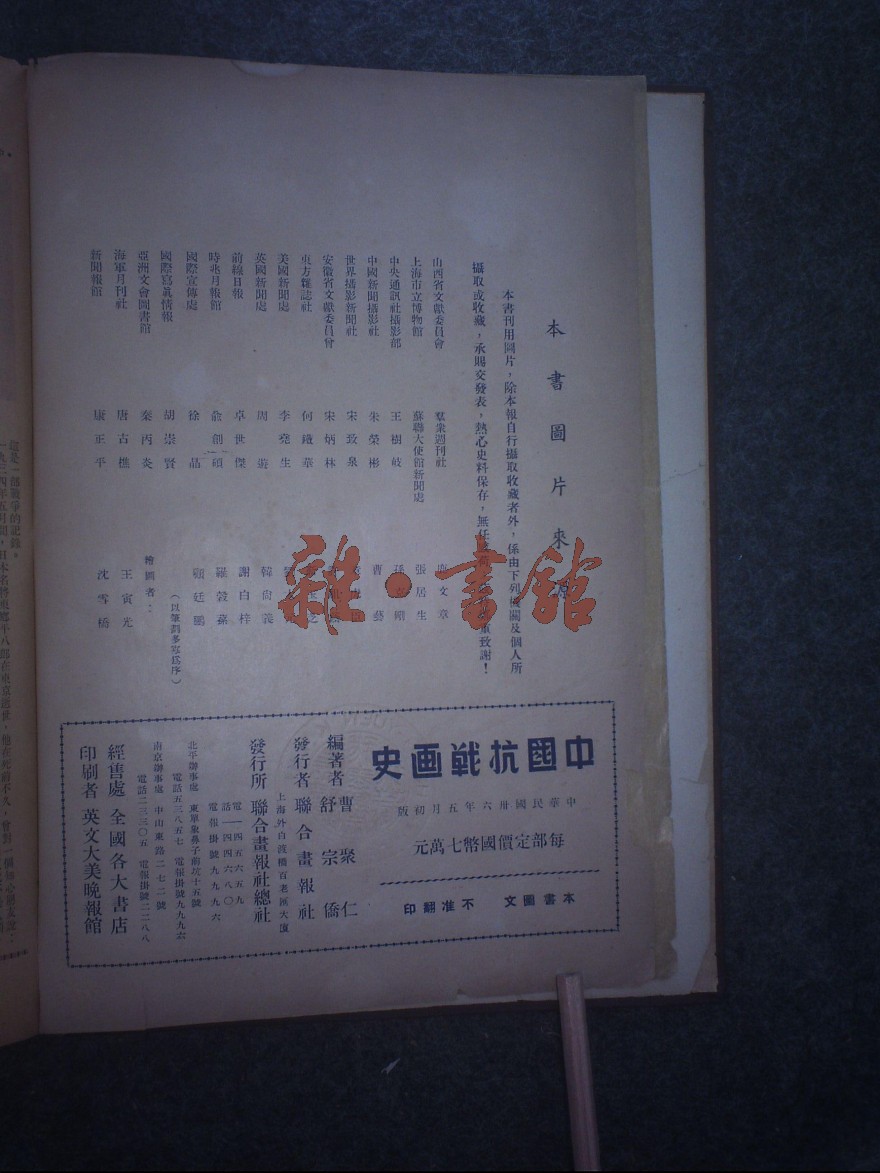 本書圖片來源
本書刊用圖片，除本報自行攝取收藏者外，係由下列機關及個人所
攝取或收藏，承賜交發表，熱心史料保存，無任
重致謝！
山西省文獻委員會
上海市立博物館
中央通訊社攝影部
中國新聞攝影社
世界攝影新聞社
安徽省文獻委員會
東方雜誌社
美國新聞處
英國新聞處
前線日報
時兆月報館
國際宣傳處
國際寫眞情報
亞洲文會圖書館
海軍月刊社
新聞報館
羣衆週刊社
蘇聯大使館新聞處
王樹岐
朱榮彬
宋致泉
宋炳林
何鐵華
李堯生
周遊
卓世傑
俞創碩
徐晶
胡崇賢
秦丙炎
唐古樵
康正平
文章
張居生
曹藝
韓尙義
謝白梓
羅毅蓀
顧廷鵬
（以筆劃多寡爲序）
繪圖者：
王寅光
沈雪橋
中國抗戰画史
中華民國卅六年五月初版
每部定價國幣七萬元
本書圖文 不准翻印
編著者 曹聚仁
舒宗僑
發行者 聯合畫報社
上海外白渡橋百老匯大廈
發行所 聯合畫報社總社
電話 一四五六五九
一四四六八〇
電報掛號九九九六
北平辦事處 東單象鼻子前坑十五號
電話五三八五七 電報掛號九九九六
南京辦事處 中山東路二七二號
電話二三三〇五 電報掛號二二八八
經售處 全國各大書店
印刷者 英文大美晚報館
這是一部戰爭的記錄。
雜·書館